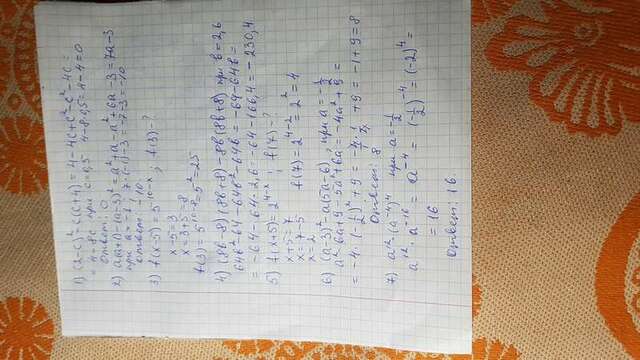 1) (2-c)² - c(c+4) = 4-4c+c²-c²-4c =
= 4-8c при c=0,5 4-8·0,5=4-4=0
Ответ: 0
2) a(a+1)-(a-3)² = a²+a-a²+6a-3=7a-3
при a=-1; 7·(-1)-3=-7-3=-10
Ответ: -10.
3) f(x-5)=5^{10-x}; f(3)-?
x-5=3
x=3+5=8
f(3)=5^{10-8}=5²=25
4) (8b-8)(8b+8)-8b(8b+8) при b=2,6
64b²-64-64b²-64b=-64-64b=
=-64-64·2,6=-64-166,4=-230,4
5) f(x+5)=2^{4-x}; f(7)-?
x+5=7
x=7-5 f(7)=2^{4-2}=2²=4
x=2
6) (a-3)²-a(5a-6), при a=-1/2
a²-6a+9-5a²+6a=-4a²+9=
=-4·(-1/2)²+9=-4/1·1/4+9=-1+9=8
Ответ: 8
7) a¹²·(a⁻⁴)⁴ при a=-1/2
a¹²·a⁻¹⁶=a⁻⁴=(-1/2)⁻⁴=(-2)⁴=
=16
Ответ: 16.